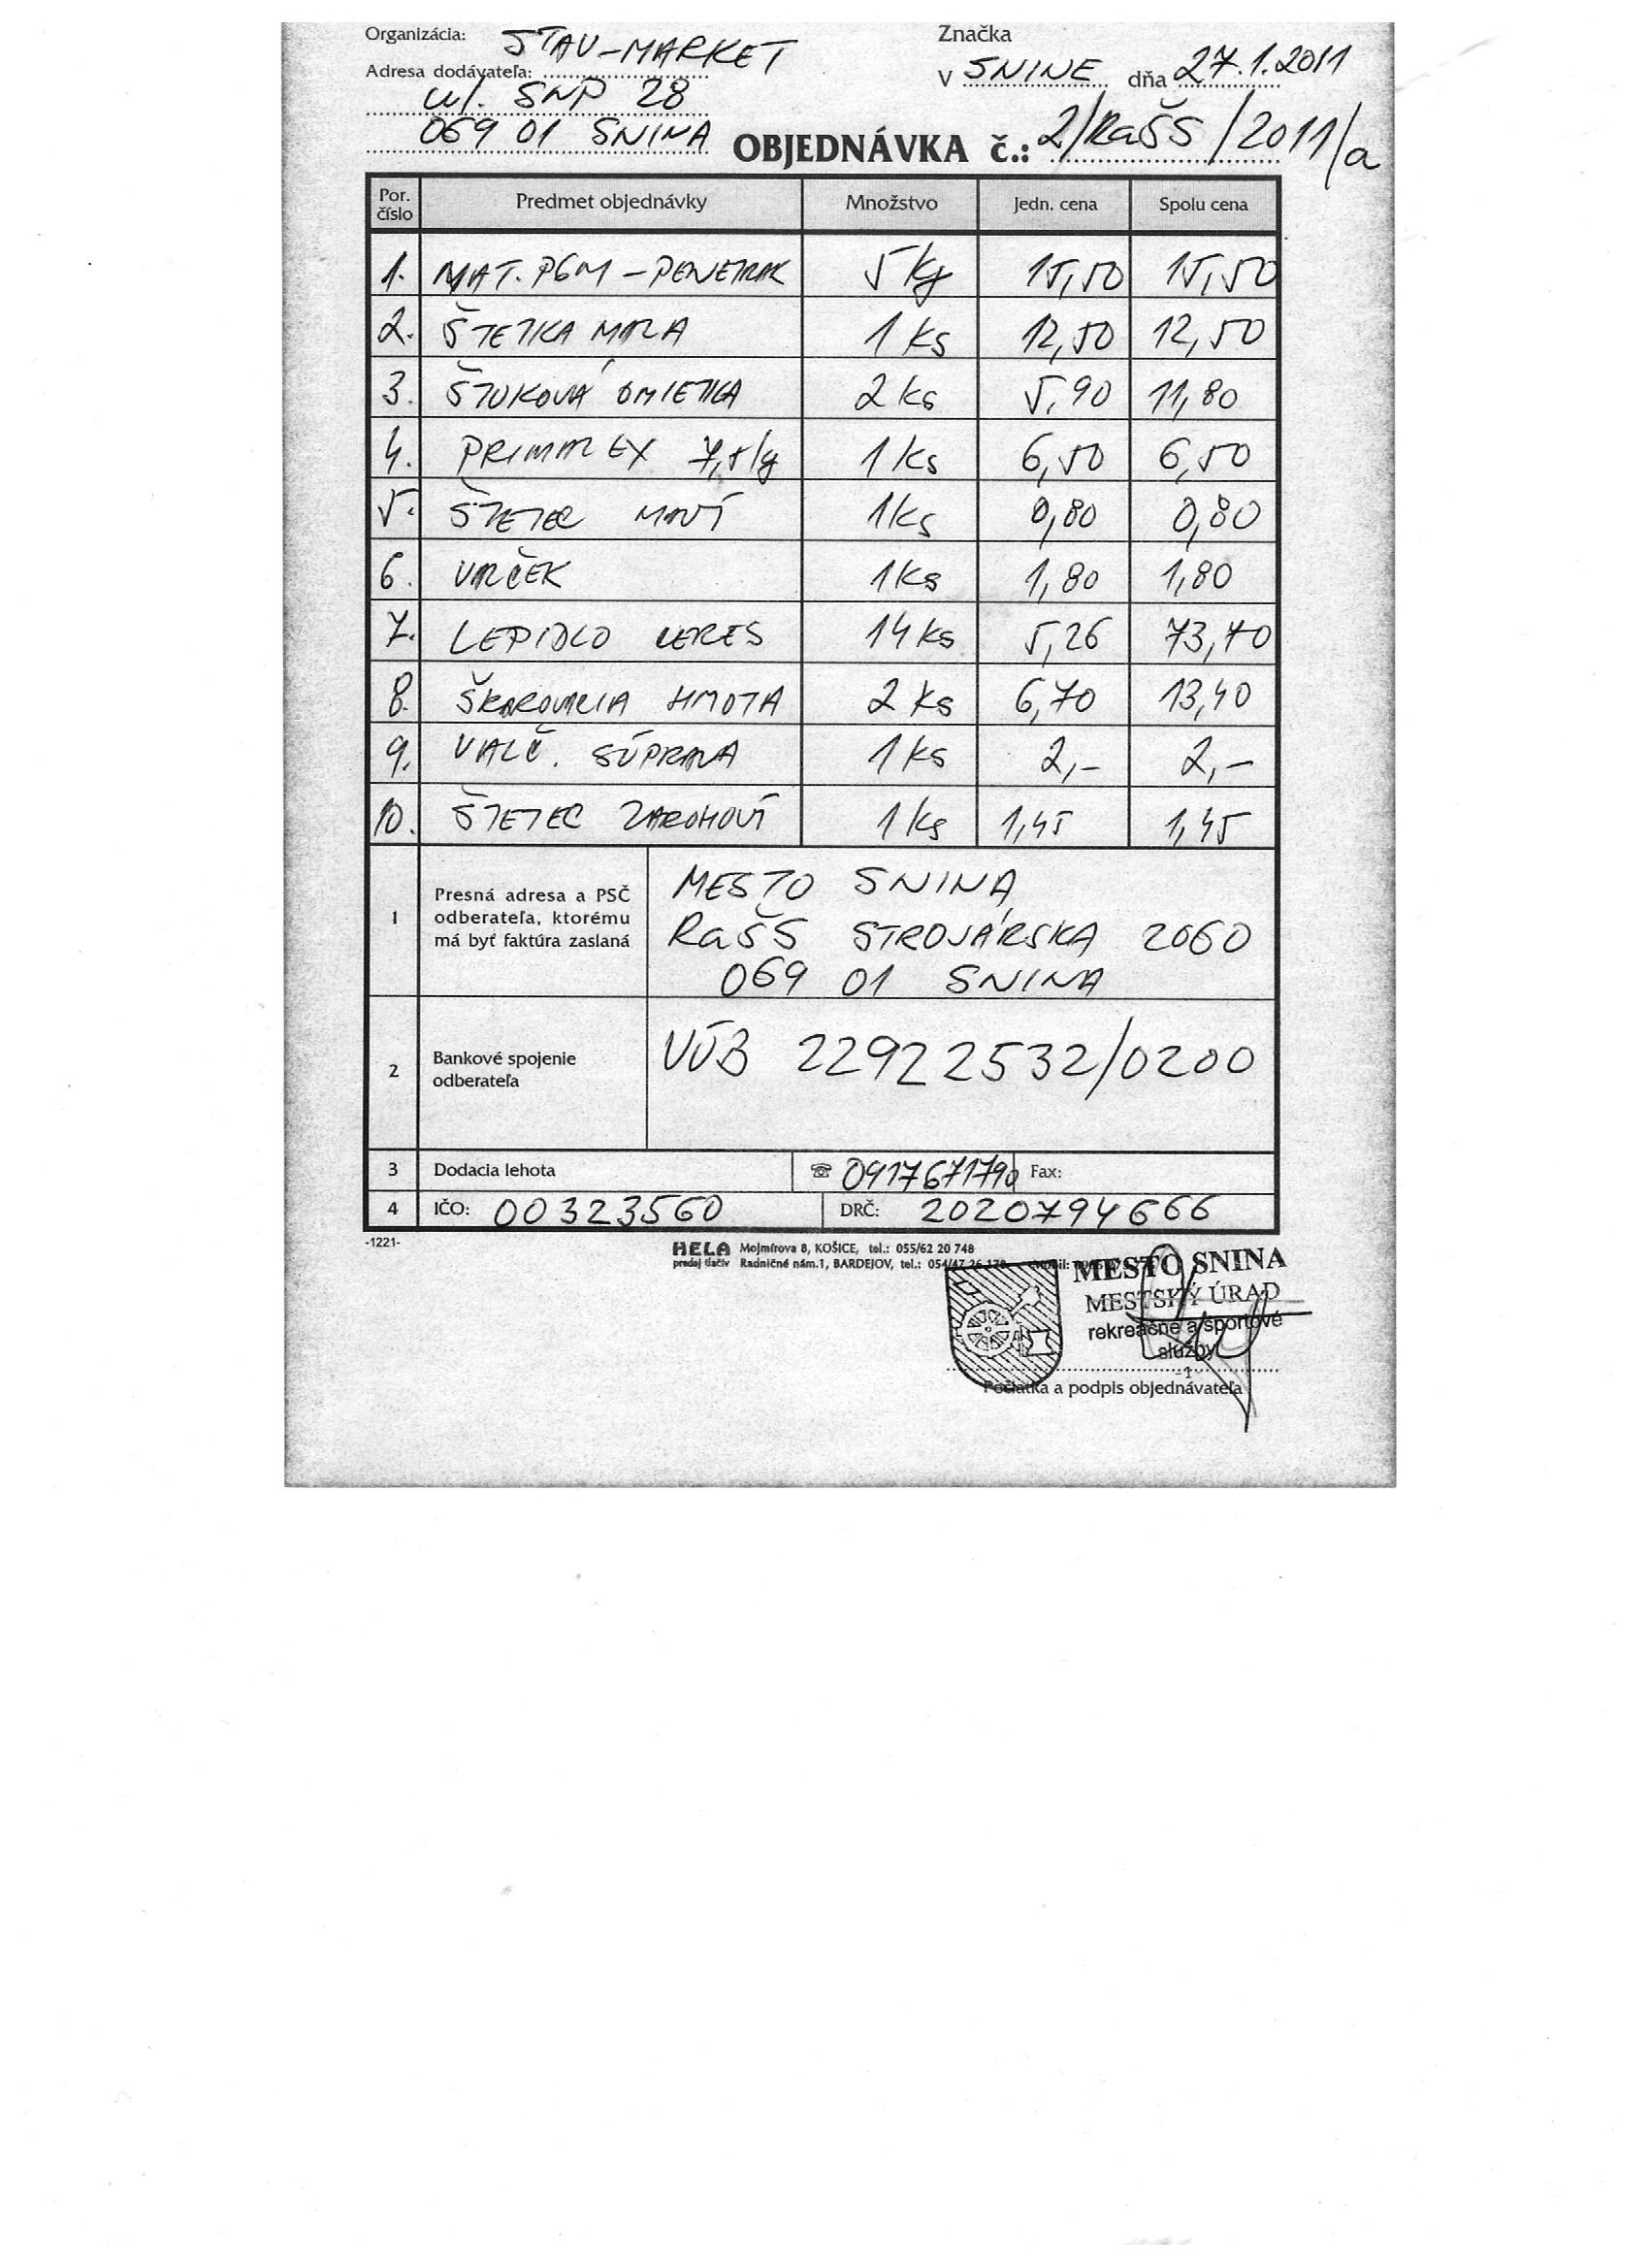 Organizácia: STAV-MARKET
Značka
Adresa dodávateľa:
V SNINE dňa 27.1.2011
ul. SNP 28
069 01 SNINA
OBJEDNÁVKA č.: 2/RaŠS/2011/a
Por. číslo Predmet objednávky Množstvo Jedn. cena Spolu cena
1. MAT. PGM - PENETRAK 5 kg 15,50 15,50
2. ŠTETKA MALÁ 1 ks 12,50 12,50
3. ŠTUKOVÁ OMIETKA 2 ks 5,90 11,80
4. PRIMALEX 1 ks 6,50 6,50
5. ŠTETEC MALÝ 1 ks 0,80 0,80
6. VRČEK 1 ks 1,80 1,80
7. LEPIDLO CERES 14 ks 5,26 73,70
8. ŠKÁROVACIA HMOTA 2 ks 6,70 13,40
9. VALČ. SÚPRAVA 1 ks 2,- 2,-
10. ŠTETEC ZÁROHOVÝ 1 ks 1,45 1,45
1 Presná adresa a PSČ
odberateľa, ktorému
má byť faktúra zaslaná
MESTO SNINA,
RaŠS STROJÁRSKA 2060
069 01 SNINA
2 Bankové spojenie
odberateľa
VÚB 22922532/0200
3 Dodacia lehota ☎ 0917671790 Fax:
4 IČO: 00323560 DRČ: 2020794666
-1221-
HELA Mojmírova 8, KOŠICE, tel.: 055/62 20 748
predaj tlačív Radničné nám.1, BARDEJOV, tel.: 054/47 26 170
MESTO SNINA
MESTSKÝ ÚRAD
rekreačné a športové
služby
-1-
Pečiatka a podpis objednávateľa